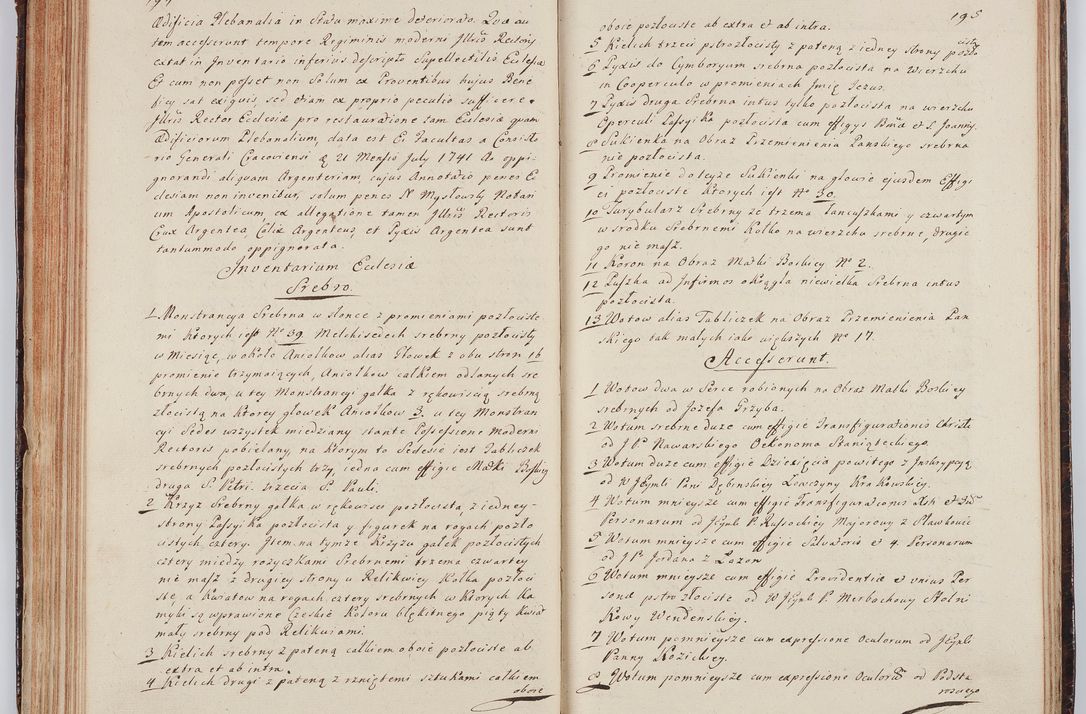 194
Ædificia Plebanalia in Statu maxime deteriorato. Quæ au
tem accesserunt tempore Regiminis moderni Illris Rectoris
extat in Inventario inferius descripto Supellectilis Eclesiæ
Et cum non posset non Solum ex Proventibus hujus Bene
ficy sat exiguis, sed etiam ex proprio peculio sufficere
Illris Rector Eclesiæ pro restauratione tam Eclesiæ quam
Ædificiorum Plebanalium, data est Ei Facultas a Consisto
rio Generali Cracoviensi 21 Mensis July 1741 Ao oppi-
gnorandi aliquam Argenteriam, cujus Annotatio penes E
clesiam non invenitur, solum penes N Mysłowski Notari
um Apostolicum, ex allegatione tamen Illris Rectoris
Crux Argentea, Calix Argenteus, et Pyxis Argentea sunt
tantummodo oppignorata.
Inventarium Eclesiæ
Srebro.
1 Monstrancya Srebrna w słonce z promieniami pozłociste
mi ktorych iest No 39. Melchisedech srebrny pozłocisty
w Miesiąc, w około Aniołkow alias Głowek z obu stron 16
promienie trzymaiących, Aniołkow całkiem odlanych sre
brnych dwa, u tey Monstrancyi gałka z rękowiscią srebrną
złocistą na ktorey głowek Aniołkow 3. u tey Monstran
cyi Sedes wszystek miedziany stante Possessione Moderni
Rectoris pobielany, na ktorym to Sedesie iest Tabliczek
srebrnych pozłocistych trzy, iedna cum effigie Matki Boskiey
druga S. Petri. trzecia S. Pauli.
2 Krzyz Srebrny gałka w rękowisci pozłocista, z iedney-
strony Passyika pozłocista y figurek na rogach pozło
cistych cztery. Item na tymze krzyzu gałek pozłocistych
cztery między rozyczkami Srebrnemi trzema czwartey
nie masz z drugiey strony u Relikwiey kołka pozłoci
ste, a kwiatow na rogach cztery srebrnych w ktorych ka
myki są wprawione Czeskie koloru błękitnego piąty kwiat
mały srebrny pod Relikwiami.
3 Kielich srebrny z pateną całkiem oboie pozłociste ab
extra et ab intra.
4 Kielich drugi z pateną z rzniętemi sztukami całkiem
oboie
195
oboie pozłociste ab extra et ab intra.
5 Kielich trzeci pstrozłocisty z pateną z iedney strony pozło
cistą
6 Pyxis do Cymboryum srebrna pozłocista na wierzchu
in Cooperculo w promieniach Imię Jezus.
7 Pyxis druga Srebrna intus tylko pozłocista na wierzchu
Operculi Passyika pozłocista cum effigys Bmæ et S. Joannis.
8 Sukienka na Obraz Przemienienia Panskiego srebrna
nie pozłocista.
9 Promienie do teyze Sukienki na głowie ejusdem Effigi
ei pozłociste ktorych iest No 30.
10 Turybularz Srebrny ze trzema łancuszkami y czwartym
w srodku Srebrnemi kołko na wierzchu srebrne, drugie
go nie masz.
11 Koron na Obraz Matki Boskiey No 2.
12 Puszka ad Infirmos okrągła niewielka Srebrna intus
pozłocista.
13 Wotow alias Tabliczek na Obraz Przemienienia Pan
skiego tak małych iako większych No 17.
Accesserunt.
1 Wotow dwa w Serce robionych na Obraz Matki Boskiey
srebrnych od Jozefa Grzyba.
2 Wotum srebrne duze cum effigie Transfigurationis Christi
od J P Nawarskiego Oekonoma Staniąteckiego.
3 Wotum duze cum effigie Dziecięcia powitego z Inskrypcyą
od W Jeymci Pani Dębinskiey Łowczyny Krakowskiey.
4 Wotum mnieysze cum effigie Transfigurationis
Personarum od Jeymci P. Russockiey Majorowy z Sławkowic
5 Wotum mnieysze cum effigie Salvatoris et 4 Personarum
od JP Jordana z Łazon
6 Wotum mnieysze cum effigie Providentiæ et unius Per
sonæ pstrozłociste od W Jeymci P. Merbachowy Stolni
kowy Wendenskiey.
7 Wotum pomnieysze cum expressione Oculorum od Jeymci
Panny Kozickiey.
8 Wotum pomnieysze cum expressione Oculorum od Podsta
rosciego